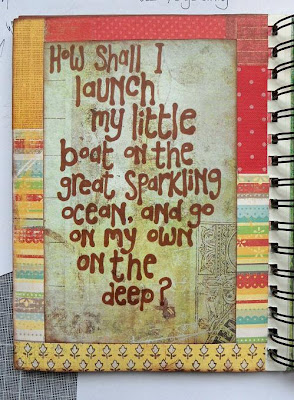 How Shall I
launch
my little
boat on the
great Sparkling
ocean, and go
on my own
on the
deep?